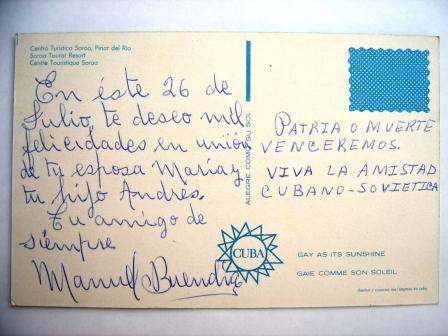 Centro Turístico Soroa, Pinar del Río
Soroa Tourist Resort
Centre Touristique Soroa
En éste 26 de
Julio, te deseo mil
felicidades en unión
de tu esposa María y
tu hijo Andres.
Tu amigo de
siempre
Manuel Buendía
ALEGRE COMO SU SOL
PATRIA O MUERTE
VENCEREMOS.
VIVA LA AMISTAD
CUBANO-SOVIETICA
CUBA
GAY AS ITS SUNSHINE
GAIE COMME SON SOLEIL